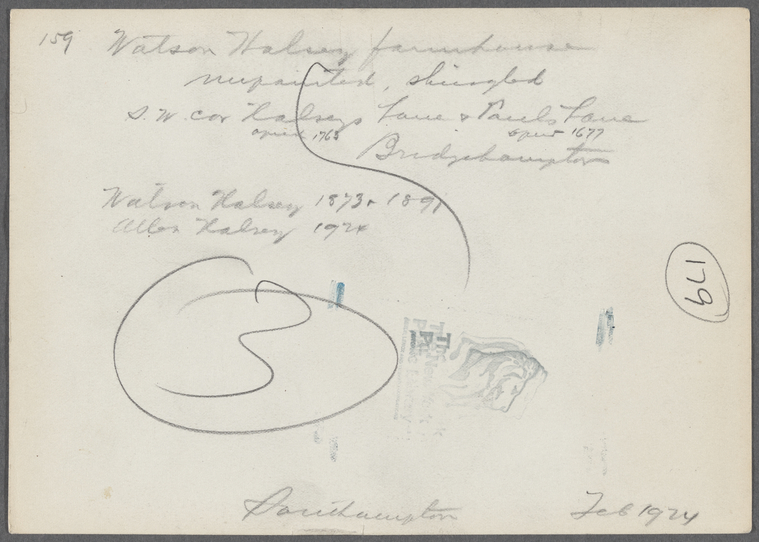 159 Watson Halsey farmhouse
unpainted, shingled
S.W. cor Halseys Lane & Pauls Lane
opened 1763 open 1677
Bridgehampton
Watson Halsey 1873 & 1891
Allen Halsey 1924
3
179
Southampton Feb 1924